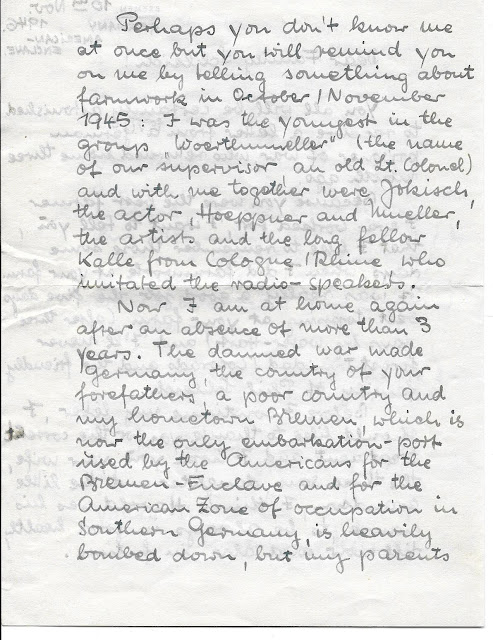 Perhaps you don't know me
at once but you will remind you
on me by telling something about
farmwork in October/November
1945: I was the youngest in the
group "Woerthmueller" (the name
of our supervisor, an old Lt. Colonel)
and with me together were Jokisch,
the actor, Hoeppner and Mueller,
the artists and the long fellow
Kalle from Cologne/Rhine who
imitated the radio-speakers.
Now I am at home again
after an absence of more than 3
years. The damned war made
Germany, the country of your
forefathers, a poor country and
my hometown Bremen, which is
now the only embarkation-port
used by the Americans for the
Bremen-Enclave and for the
American Zone of occupation in
Southern Germany, is heavily
bombed down, but my parents